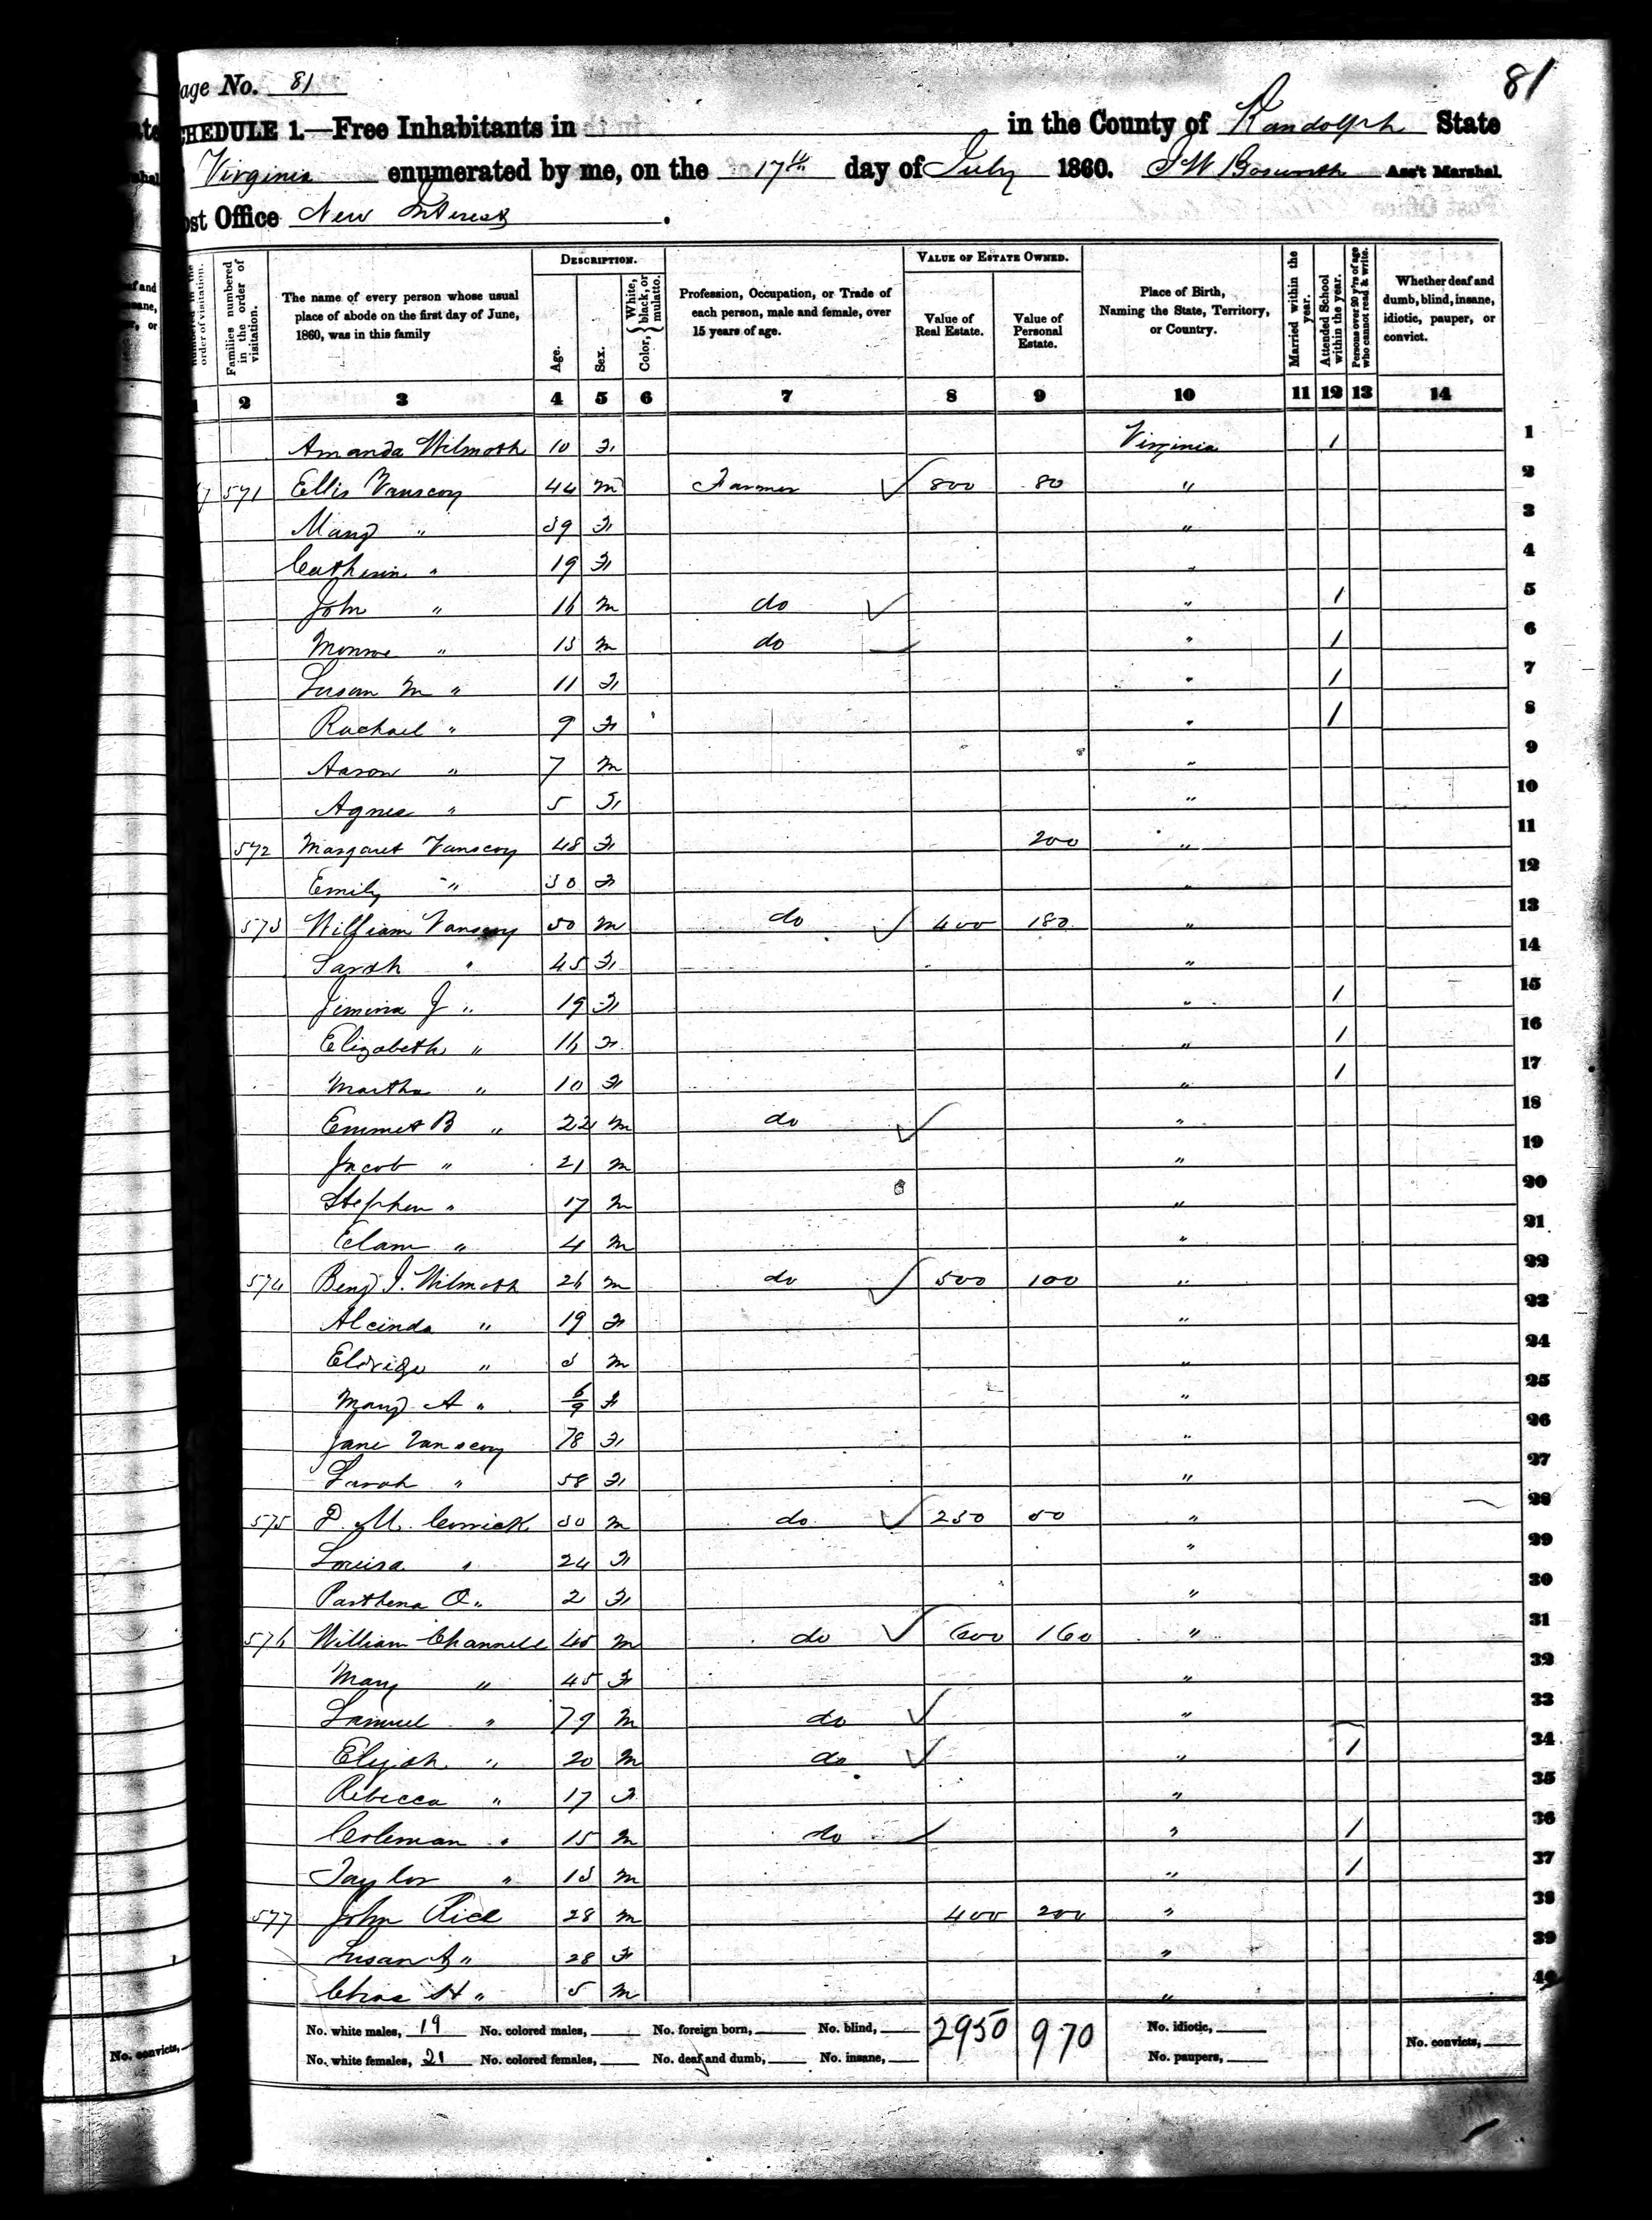 81
Page No. 81
SCHEDULE 1.—Free Inhabitants in in the County of Randolph State
Virginia enumerated by me, on the 17th day of July 1860. J W Bosworth Ass't Marshal.
Post Office New Interest.
DESCRIPTION. VALUE OF ESTATE OWNED.
order of visitation. Families numbered in the order of visitation. The name of every person whose usual place of abode on the first day of June, 1860, was in this family Age. Sex. Color, White, black, or mulatto. Profession, Occupation, or Trade of each person, male and female, over 15 years of age. Value of Real Estate. Value of Personal Estate. Place of Birth, Naming the State, Territory, or Country. Married within the year. Attended School within the year. Persons over 20 y'rs of age who cannot read & write. Whether deaf and dumb, blind, insane, idiotic, pauper, or convict.
1 2 3 4 5 6 7 8 9 10 11 12 13 14
Amanda Wilmoth 10 F Virginia 1 1
7 571 Ellis Vanscoy 44 m Farmer ✓ 800 80 " 2
Mary " 39 F " 3
Catherin " 19 F " 4
John " 16 m do ✓ " 1 5
Monroe " 13 m do " 1 6
Susan M " 11 F " 1 7
Rachael " 9 F " 1 8
Aaron " 7 m " 9
Agnes " 5 F " 10
572 Margaret Vanscoy 48 F 200 " 11
Emily " 30 F " 12
573 William Vanscoy 50 m do ✓ 400 180 " 13
Sarah " 45 F " 14
Jemima J " 19 F " 1 15
Elizabeth " 16 F " 1 16
Martha " 10 F " 1 17
Emmet B " 22 m do ✓ " 18
Jacob " 21 m " 19
Stephen " 17 m " 20
Elam " 4 m " 21
574 Benj I. Wilmoth 26 m do ✓ 500 100 " 22
Alcinda " 19 F " 23
Eldridge " 3 m " 24
Mary A " 6/9 F " 25
Jane Vanscoy 78 F " 26
Sarah " 58 F " 27
575 P. M. Cormick 30 m do ✓ 250 50 " 28
Louisa " 24 F " 29
Parthena O " 2 F " 30
576 William Channell 45 m do ✓ 600 160 " 31
Mary " 45 F " 32
Samuel " 79 m do ✓ " 33
Elijah " 20 m do ✓ " 1 34
Rebecca " 17 F " 35
Coleman " 15 m do " 1 36
Taylor " 13 m " 1 37
577 John Rice 28 m 400 200 " 38
Susan " 28 F " 39
Chas H " 5 m " 40
No. white males, 19 No. colored males, No. foreign born, No. blind, 2950 970 No. idiotic, No. convicts,
No. white females, 21 No. colored females, No. deaf and dumb, No. insane, No. paupers,
No. convicts,